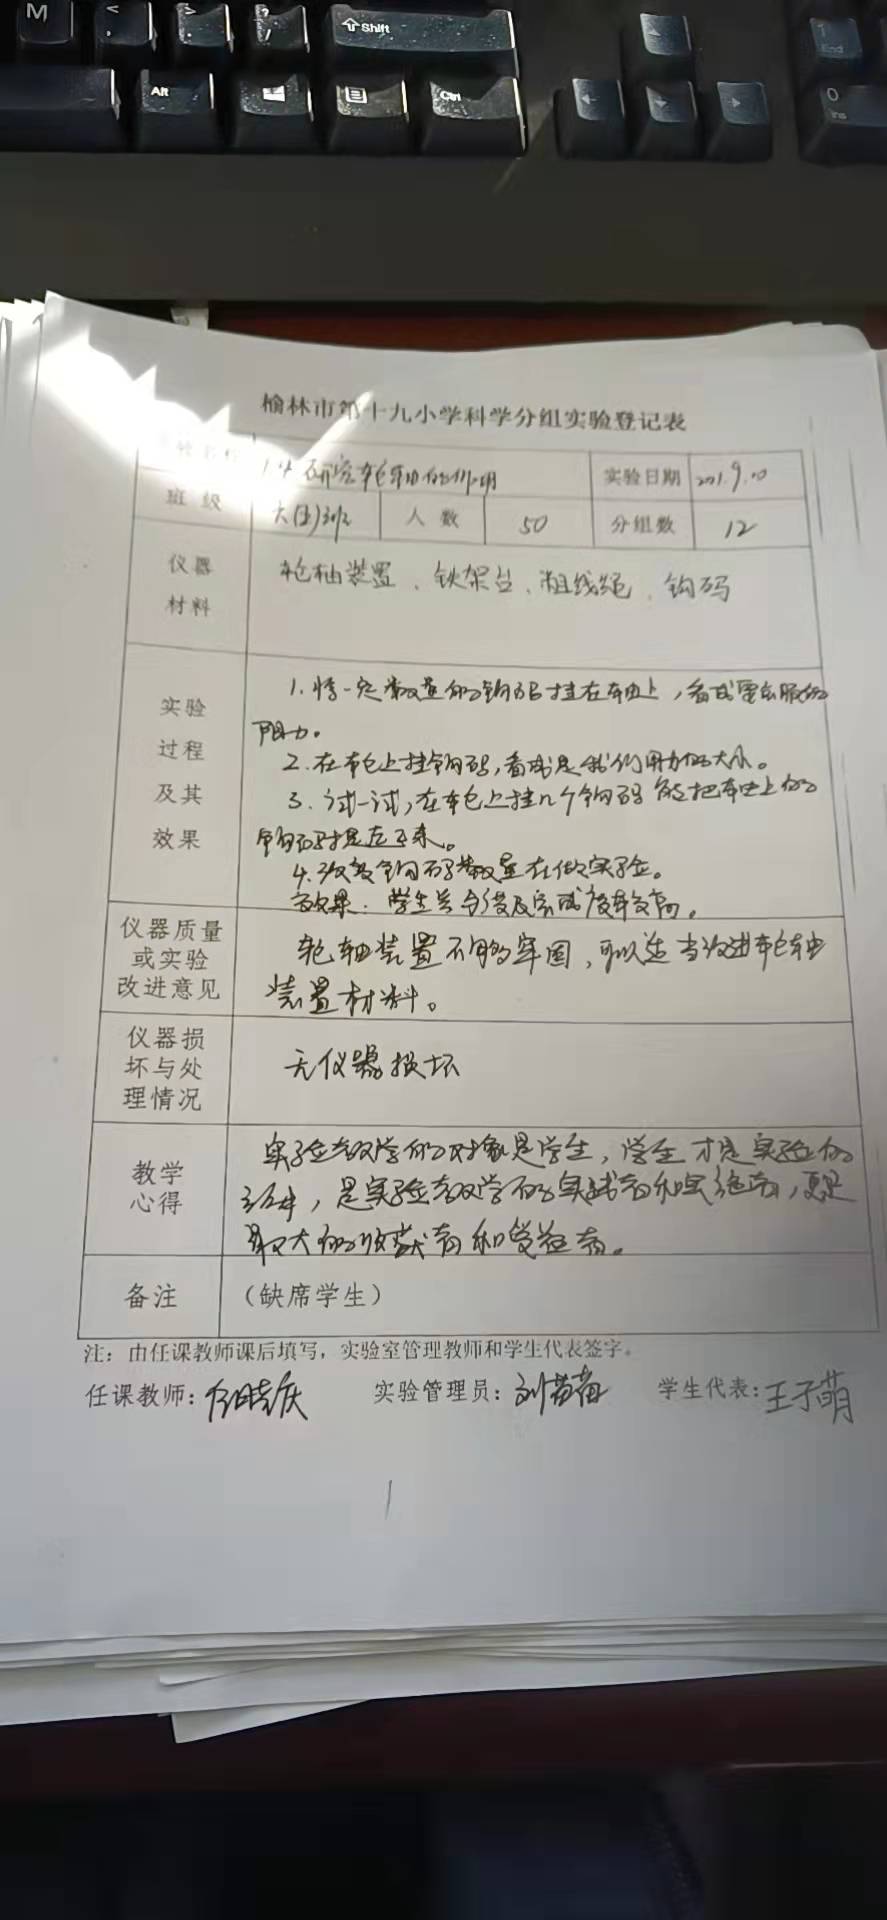 M < , > . ? / Shift 1 End
Alt Ctrl 0 Ins
榆林市第十九小学科学分组实验登记表
1.4 研究轮轴的作用 实验日期 2021.9.10
班级 六(五)班 人数 50 分组数 12
仪器
材料
轮轴装置、铁架台、粗线绳、钩码
实验
过程
及其
效果
1.将一定数量的钩码挂在轴上,看成要克服的
阻力。
2.在轮上挂钩码,看成是我们用力的大小。
3.试一试,在轮上挂几个钩码能把轴上的
钩码提起来。
4.改变钩码数量在做实验。
效果:学生参与度及完成度较高。
仪器质量
或实验
改进意见
轮轴装置不够牢固,可以适当改进轮轴
装置材料。
仪器损
坏与处
理情况
无仪器损坏
教学
心得
实验教学的对象是学生,学生才是实验的
主体,是实验教学的实践者和实施者,更是
最大的收获者和受益者。
备注 (缺席学生)
注:由任课教师课后填写,实验室管理教师和学生代表签字。
任课教师: 实验管理员:刘苗苗 学生代表:王子萌